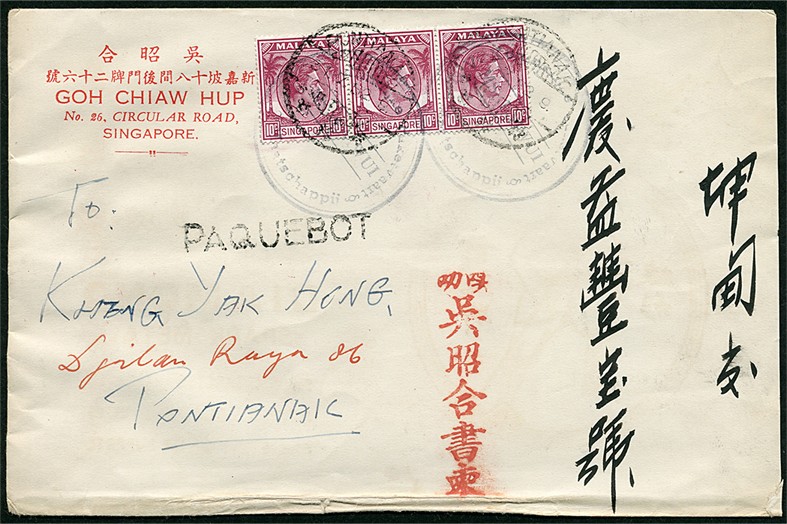 吳昭合
新嘉坡十八間後門牌二十六號
GOH CHIAW HUP
No. 26, CIRCULAR ROAD,
SINGAPORE.
MALAYA MALAYA MALAYA
10c SINGAPORE 10c 10c SINGAPORE 10c 10c SINGAPORE 10c
To:
PAQUEBOT
KHENG YAK HONG,
Djilan Raya 86
PONTIANAK
坤甸交
慶益豐寶號
吳昭合書柬